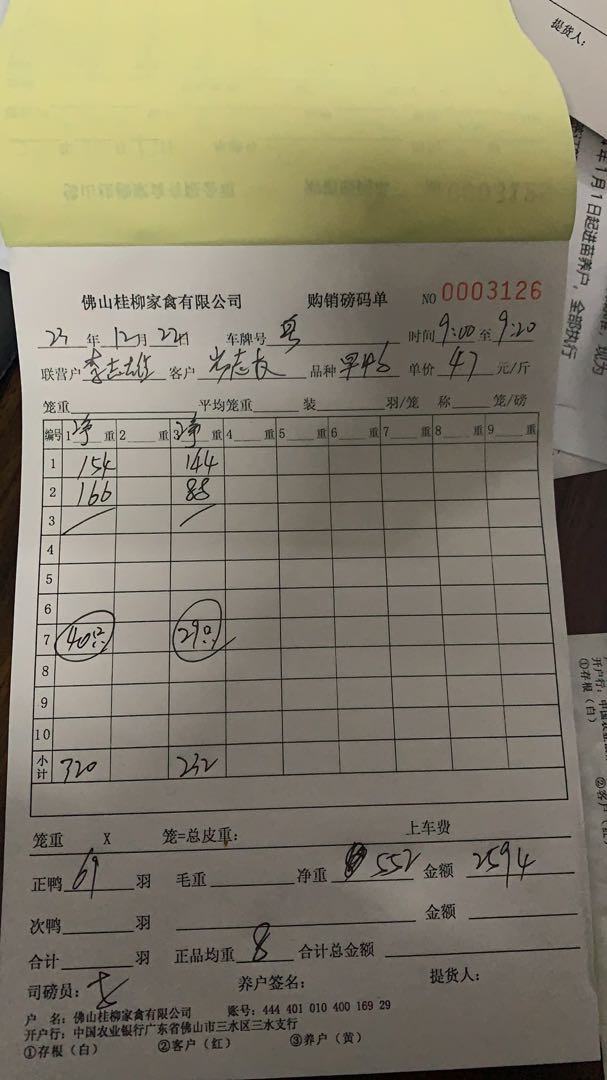 提货人:
年1月1日起进苗养户,全部执行
佛山桂柳家禽有限公司 购销磅码单 NO 0003126
23年12月22日 车牌号 粤 时间9:00至9:20
联营户 李志雄 客户 品种 单价 47 元/斤
笼重 平均笼重 装 羽/笼 称 笼/磅
编号 1净重 2 重 3净重 4 重 5 重 6 重 7 重 8 重 9 重
1 154 144
2 166 88
3
4
5
6
7 40只 29只
8
9
10
小计 320 232
笼重 X 笼=总皮重: 上车费
正鸭 69 羽 毛重 净重 552 金额 2594
次鸭 羽 金额
合计 羽 正品均重 8 合计总金额
司磅员: 养户签名: 提货人:
户 名: 佛山桂柳家禽有限公司 账号: 444 401 010 400 169 29
开户行: 中国农业银行广东省佛山市三水区三水支行
①存根(白) ②客户(红) ③养户(黄)